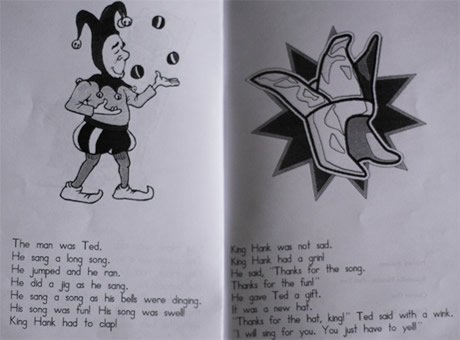 The man was Ted.
He sang a long song.
He jumped and he ran.
He did a jig as he sang.
He sang a song as his bells were dinging.
His song was fun! His song was swell!
King Hank had to clap!
King Hank was not sad.
King Hank had a grin!
He said, "Thanks for the song.
Thanks for the fun!"
He gave Ted a gift.
It was a new hat.
"Thanks for the hat, king!" Ted said with a wink.
"I will sing for you. You just have to yell!"